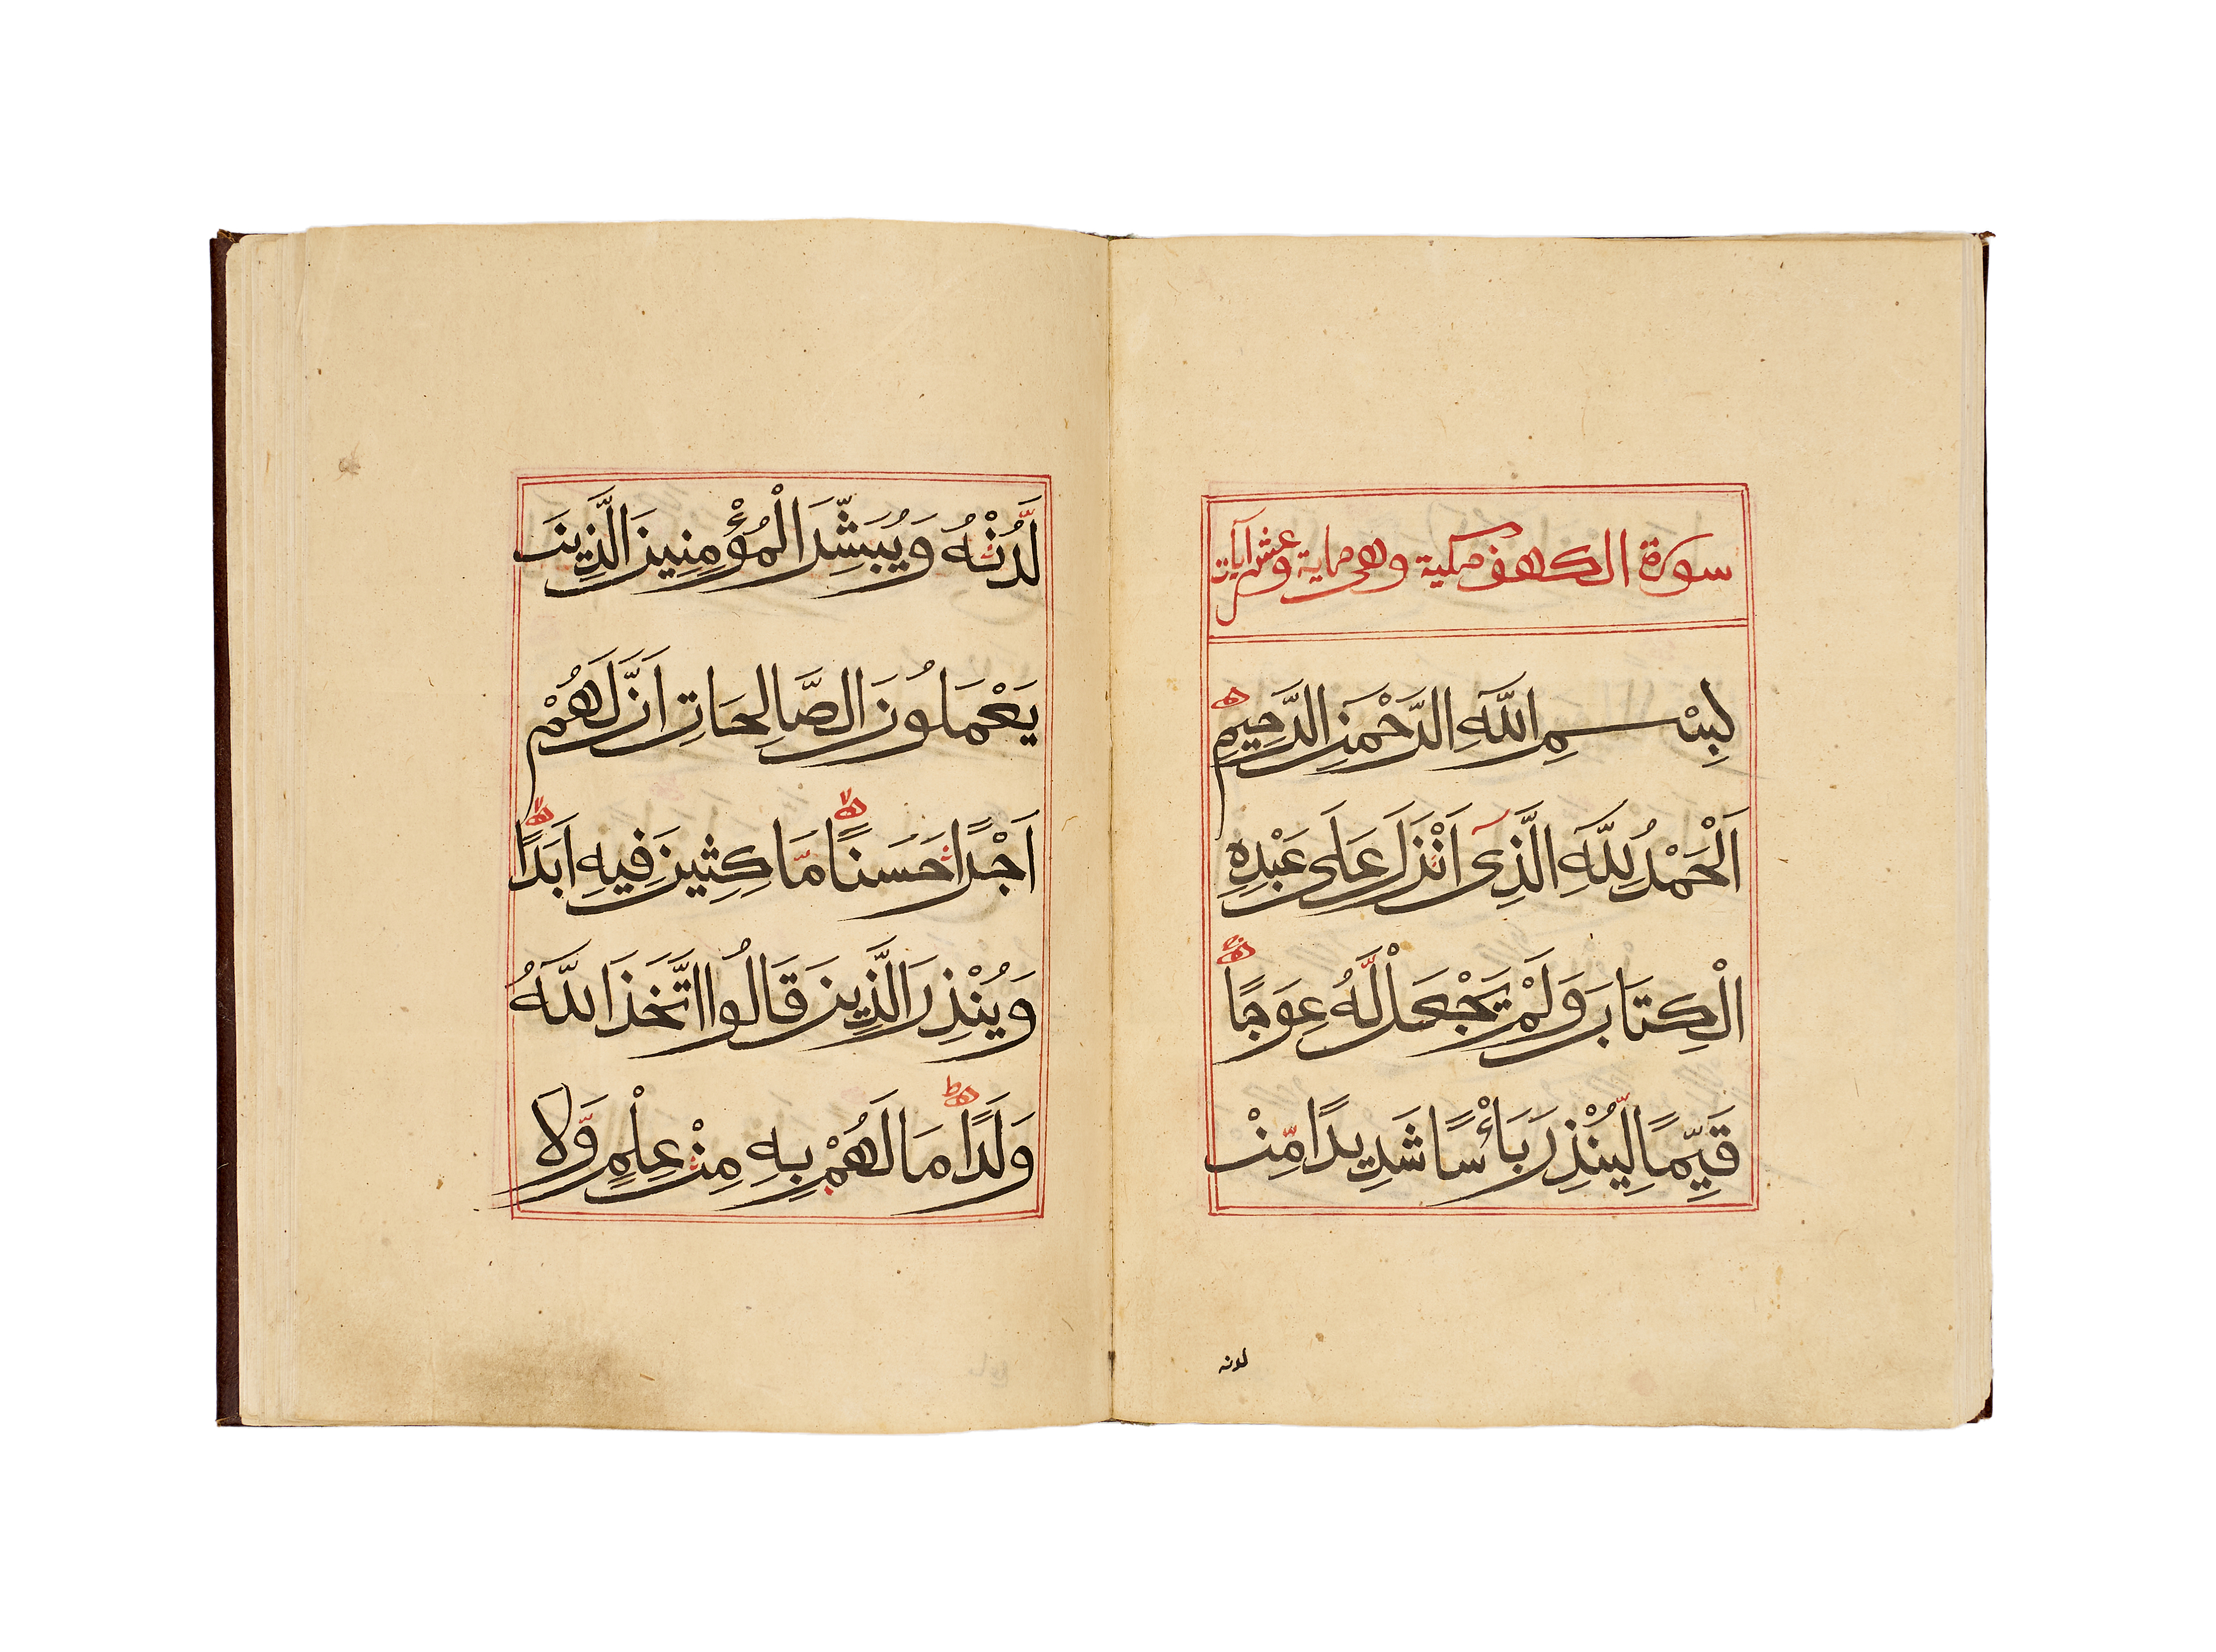 سورة الكهف مكية وهى مایة وعشر آیات
بِسْمِ اللّٰهِ الرَّحْمٰنِ الرَّحِيْمِ
اَلْحَمْدُ لِلّٰهِ الَّذِىٓ اَنْزَلَ عَلَى عَبْدِهِ
الْكِتَابَ وَلَمْ يَجْعَلْ لَّهُ عِوَجًا
قَيِّمًا لِّيُنْذِرَ بَأْسًا شَدِيدًا مِّنْ
لدنه
لَّدُنْهُ وَيُبَشِّرَ الْمُؤْمِنِينَ الَّذِينَ
يَعْمَلُونَ الصَّالِحَاتِ اَنَّ لَهُمْ
اَجْرًا حَسَنًا مَّاكِثِينَ فِيهِ اَبَدًا
وَيُنْذِرَ الَّذِينَ قَالُوا اتَّخَذَ اللّٰهُ
وَلَدًا مَا لَهُمْ بِهِ مِنْ عِلْمٍ وَّلَا